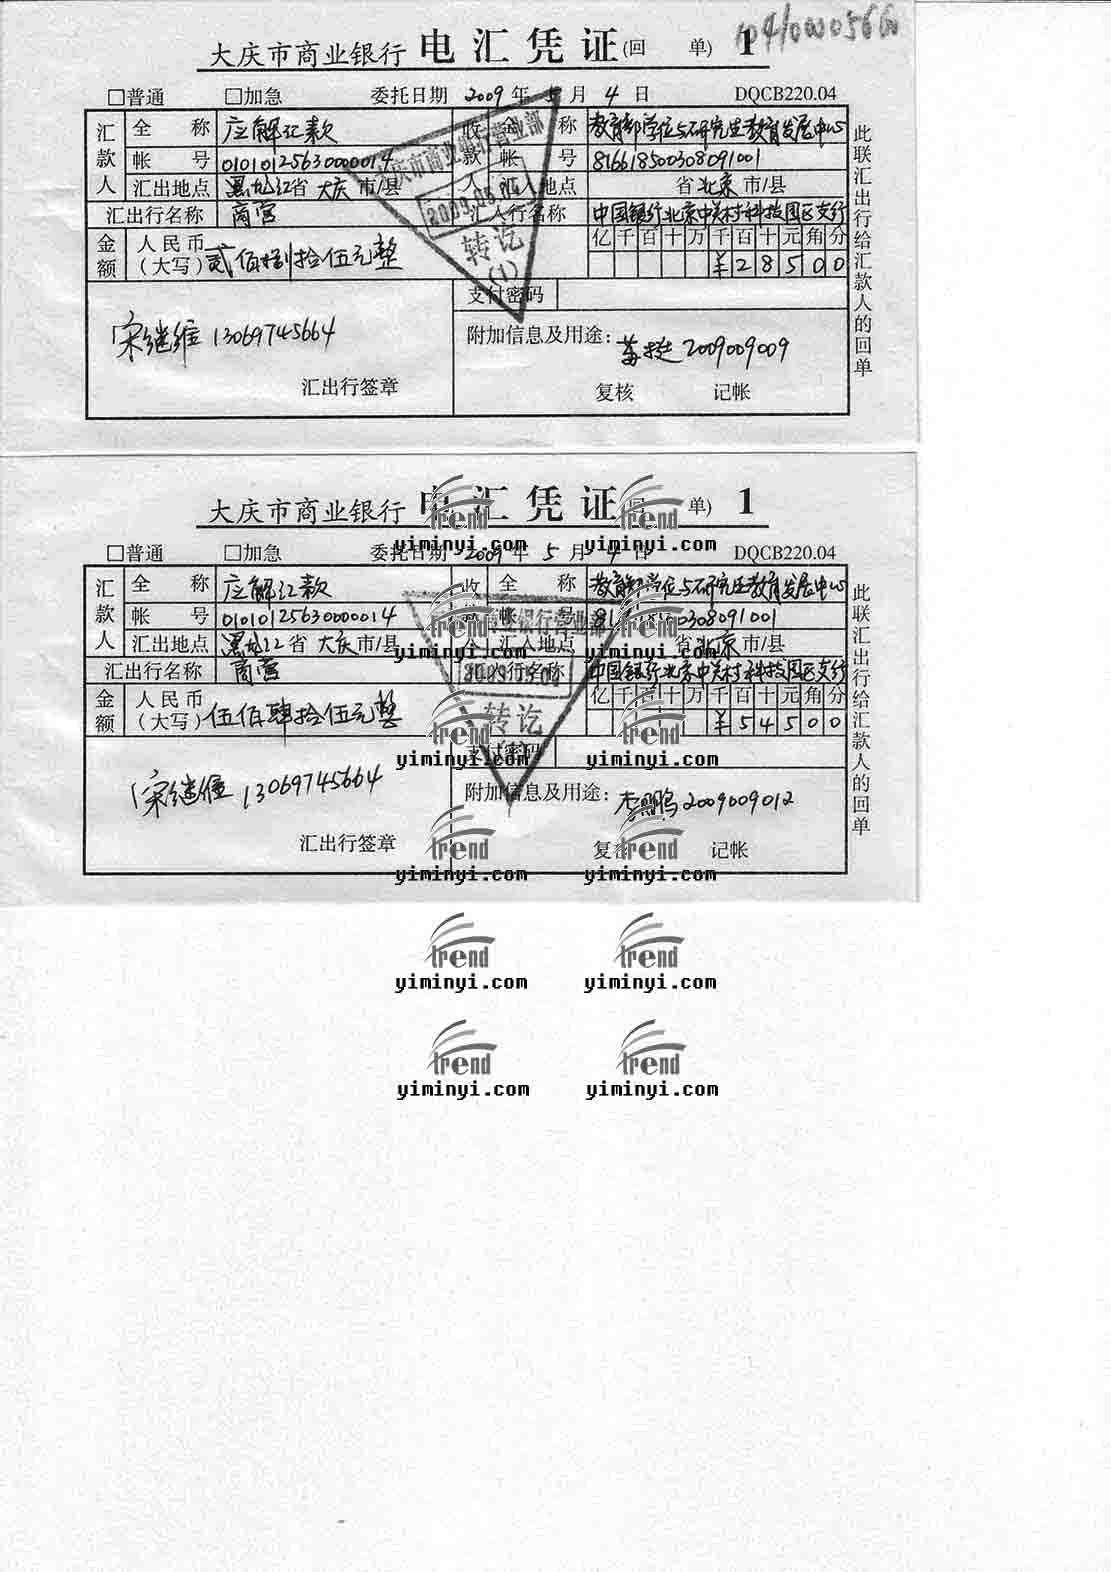 大庆市商业银行 电汇凭证 (回 单) 1
□普通 □加急 委托日期 2009 年 5 月 4 日 DQCB220.04
汇款人 全称 应解汇款 收款人 全称 教育部学位与研究生教育发展中心
帐号 0101012563000014 帐号 816618500308091001
汇出地点 黑龙江 省 大庆 市/县 汇入地点 省 北京 市/县
汇出行名称 商营 汇入行名称 中国银行北京中关村科技园区支行
金额 人民币(大写) 贰佰捌拾伍元整 亿千百十万千百十元角分
¥28500
支付密码
宋继维 13069745664 附加信息及用途: 苏挺 2009009009
汇出行签章 复核 记帐
此联汇出行给汇款人的回单
大庆市商业银行营业部
2009.05.04
转讫
(1)
大庆市商业银行 电汇凭证 (回 单) 1
□普通 □加急 委托日期 2009 年 5 月 4 日 DQCB220.04
汇款人 全称 应解汇款 收款人 全称 教育部学位与研究生教育发展中心
帐号 0101012563000014 帐号 816618500308091001
汇出地点 黑龙江 省 大庆 市/县 汇入地点 省 北京 市/县
汇出行名称 商营 汇入行名称 中国银行北京中关村科技园区支行
金额 人民币(大写) 伍佰肆拾伍元整 亿千百十万千百十元角分
¥54500
支付密码
宋继维 13069745664 附加信息及用途: 李鹏 2009009012
汇出行签章 复核 记帐
此联汇出行给汇款人的回单
商业银行营业部
2009.05.04
转讫
trend trend
yiminyi.com yiminyi.com
trend trend
yiminyi.com yiminyi.com
trend trend
yiminyi.com yiminyi.com
trend trend
yiminyi.com yiminyi.com
trend trend
yiminyi.com yiminyi.com
trend trend
yiminyi.com yiminyi.com